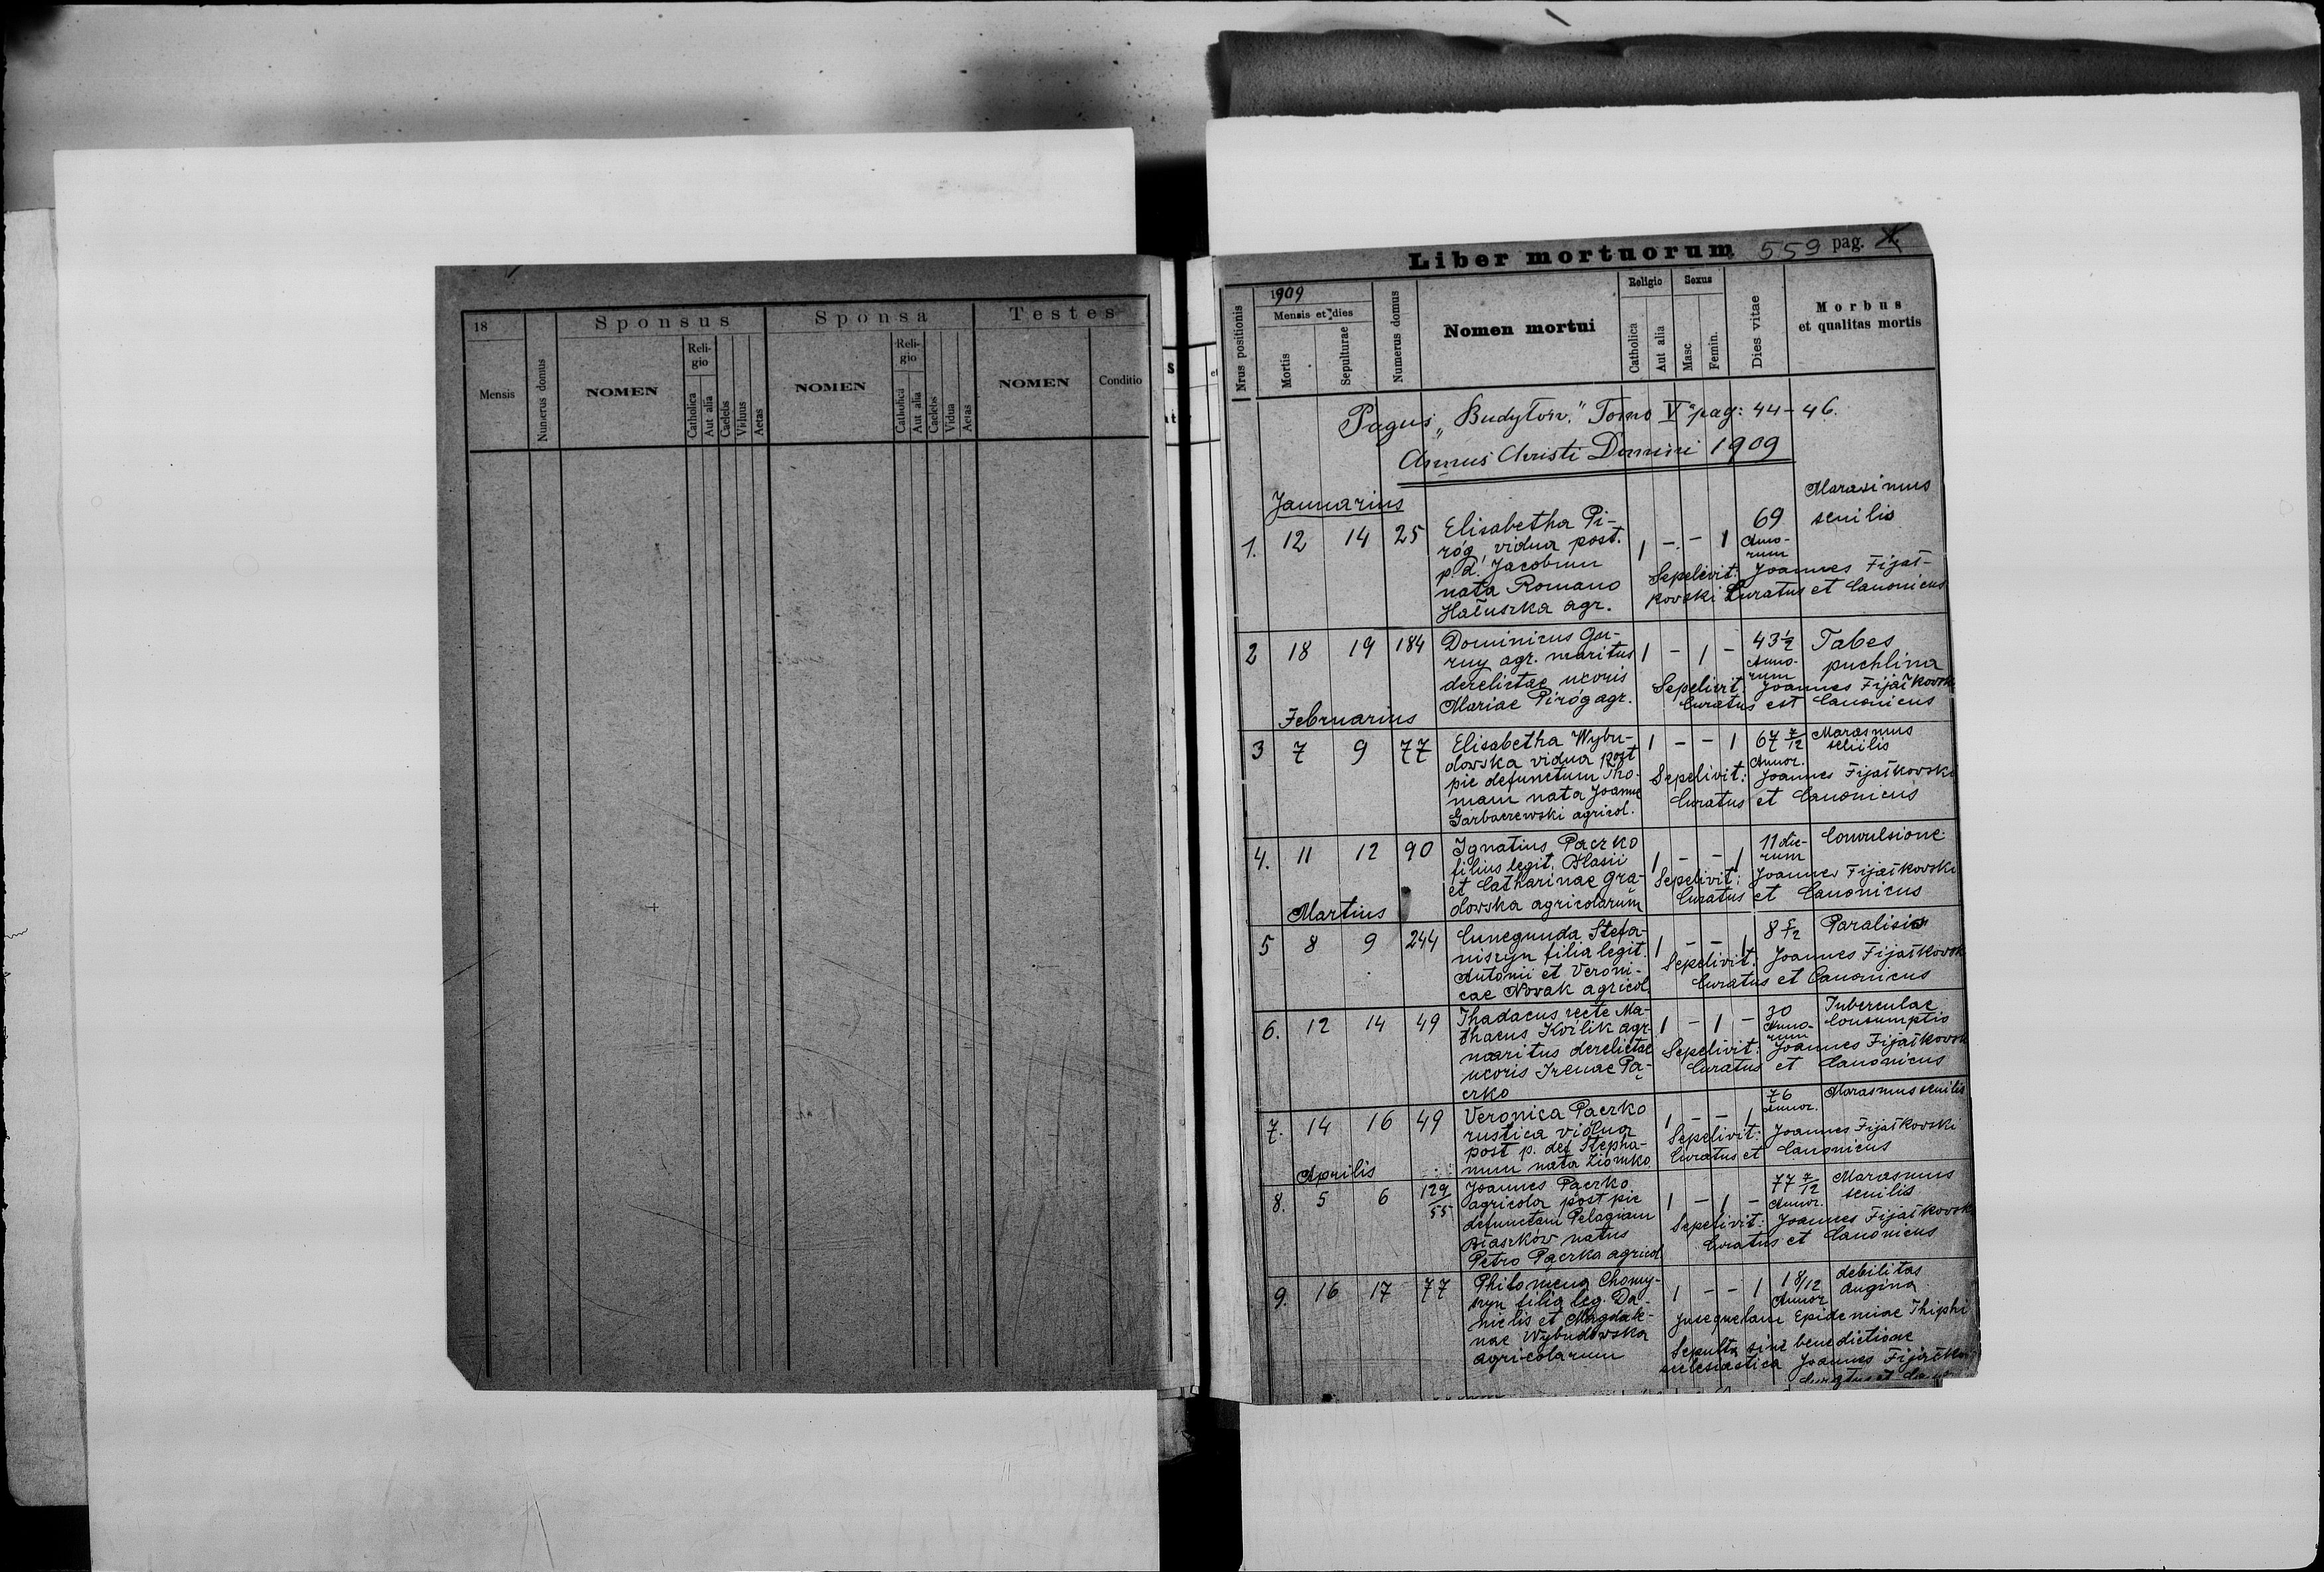 18
Mensis
Numerus domus
Sponsus
NOMEN
Reli-
gio
Catholica
Aut alia
Caelebs
Viduus
Aetas
Sponsa
NOMEN
Reli-
gio
Catholica
Aut alia
Caelebs
Vidua
Aetas
Testes
NOMEN
Conditio
Liber mortuorum 559 pag.
Nrus positionis
1909
Mensis et dies
Mortis
Sepulturae
Numerus domus
Nomen mortui
Religio
Catholica
Aut alia
Sexus
Masc
Femin.
Dies vitae
Morbus
et qualitas mortis
Pagus „Budyłów." Tomo V pag: 44-46.
Annus Christi Domini 1909
Januarius
1. 12 14 25
Elisabetha Pi-
róg, vidua post.
p. d. Jacobum
nata Romano
Hałuszka agr.
1 - - 1
69
Anno-
rum
Marasimus
senilis
Sepelivit: Joannes Fijał-
kovski Curatus et Canonicus
2 18 19 184
Dominicus Gu-
ruy agr. maritus
derelictae uxoris
Mariae Piróg agr.
1 - 1 -
43 1/2
Anno-
rum
Tabes
puchlina
Sepelivit: Joannes Fijałkovski
Curatus est Canonicus
Februarius
3 7 9 77
Elisabetha Wybu-
dowska vidua post
pie defunctum Tho-
mam nata Joanne
Garbaczewski agricol.
1 - - 1
67 7/12
Annor.
Marasmus
senilis
Sepelivit: Joannes Fijałkovski
Curatus et Canonicus
4. 11 12 90
Ignatius Paczko
filius legit. Blasii
et Catharinae Gra-
dowska agricolarum
1 - - 1
11 die-
rum
Convulsione
Sepelivit: Joannes Fijałkovski
Curatus et Canonicus
Martius
5 8 9 244
Cunegunda Stefa-
niszyn filia legit.
Antonii et Veroni-
cae Novak agricol.
1 - - 1
Paralisis
Sepelivit: Joannes Fijałkovski
Curatus et Canonicus
6. 12 14 49
Thadaeus recte Ma-
thaeus Kvilik agr.
maritus derelictae
uxoris Irenae Pa-
czko
1 - 1 -
30
Anno-
rum
Tuberculae
Consumptio
Sepelivit: Joannes Fijałkovsk
Curatus et Canonicus
7. 14 16 49
Veronica Paczko
rustica vidua
post p. def Stepha-
num nata Ziomko
1 - - 1
76
Annor.
Marasmus senilis
Sepelivit: Joannes Fijałkovski
Curatus et Canonicus
Aprilis
8. 5 6 129/55
Joannes Paczko
agricola post pie
defunctam Pelagiam
Błaszków natus
Petro Pączka agricol
1 - 1 -
77 7/12
Annor.
Marasmus
senilis
Sepelivit: Joannes Fijałkovsk
Curatus et Canonicus
9. 16 17 77
Philomena Chomy-
szyn filia leg. Da-
nielis et Magdale-
nae Wybudowska
agricolarum
1 - - 1
1 8/12
Annor
debilitas
Angina
Epidemiae Thiphi
Sepulta sine benedictione
ecclesiastica Joannes Fijałko